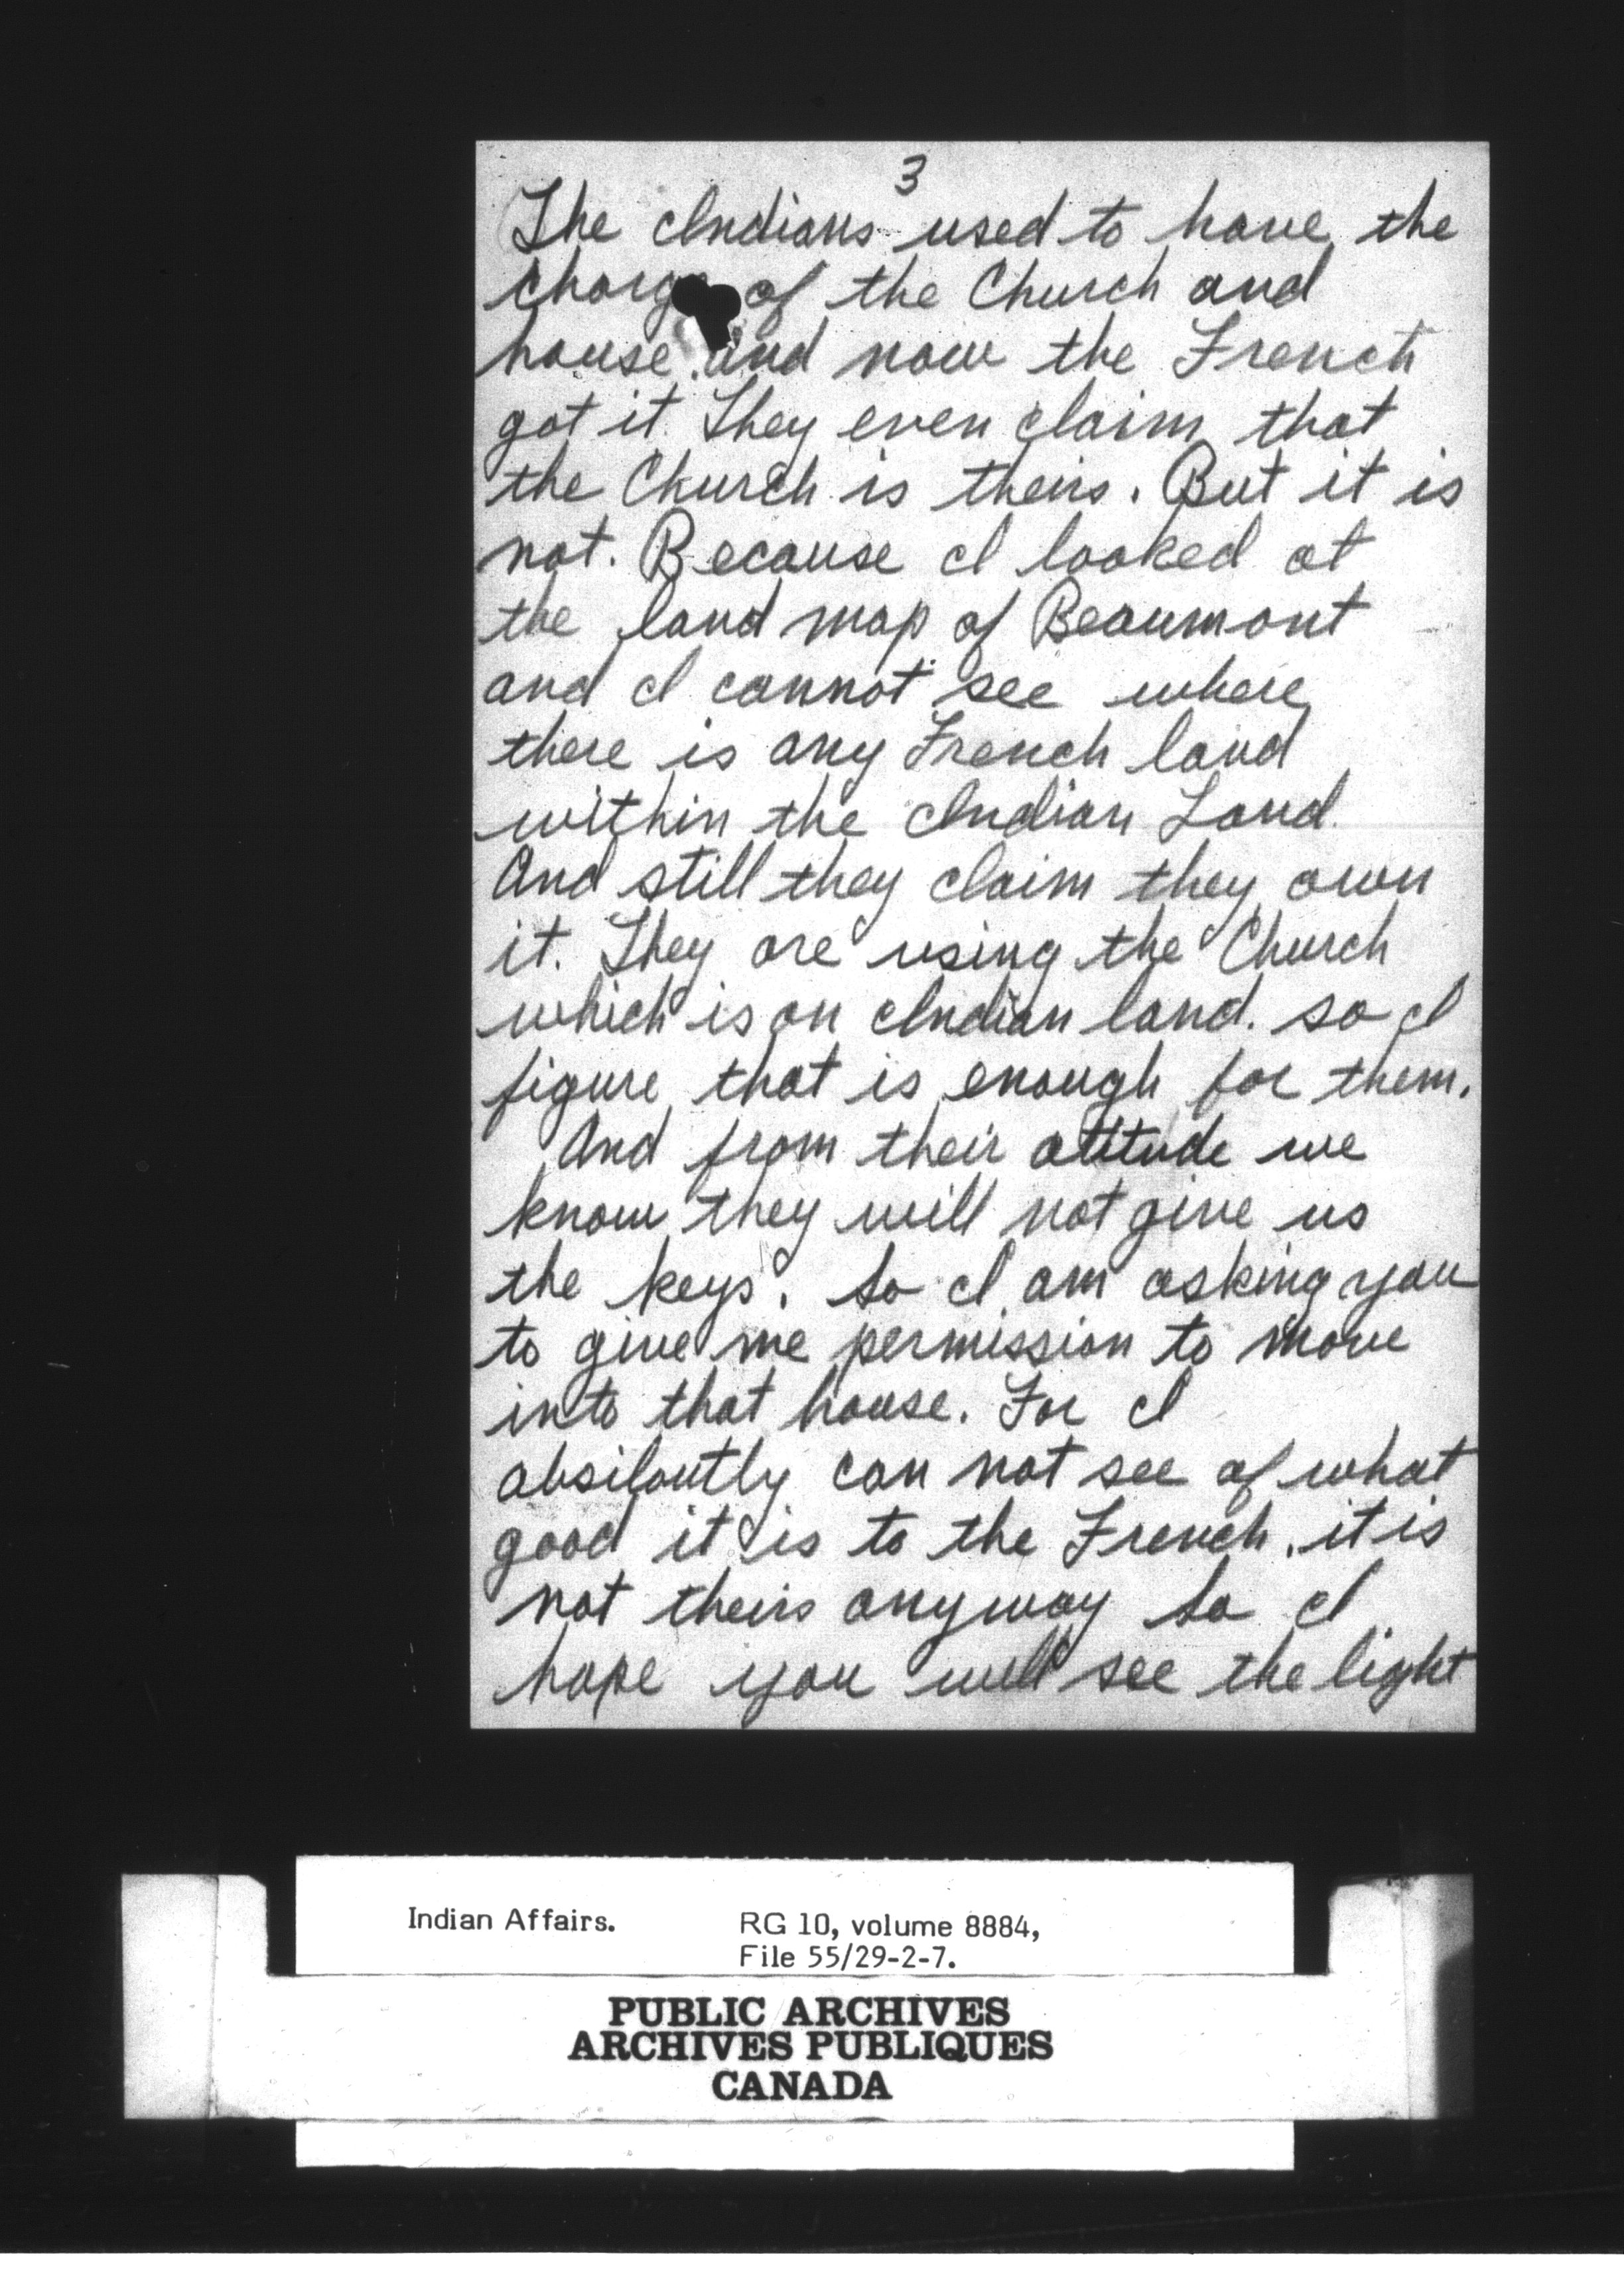 3
The Indians used to have the
charge of the Church and
house. and now the French
got it. They even claim that
the Church is theirs. But it is
not. Because I looked at
the land map of Beaumont
and I cannot see where
there is any French land
within the Indian Land.
And still they claim they own
it. They are using the Church
which is on Indian land. so I
figure that is enough for them.
And from their attitude we
know they will not give us
the keys. So I am asking you
to give me permission to move
into that house. For I
absiloutly can not see of what
good it is to the French. it is
not theirs anyway So I
hope you will see the light
Indian Affairs. RG 10, volume 8884,
File 55/29-2-7.
PUBLIC ARCHIVES
ARCHIVES PUBLIQUES
CANADA